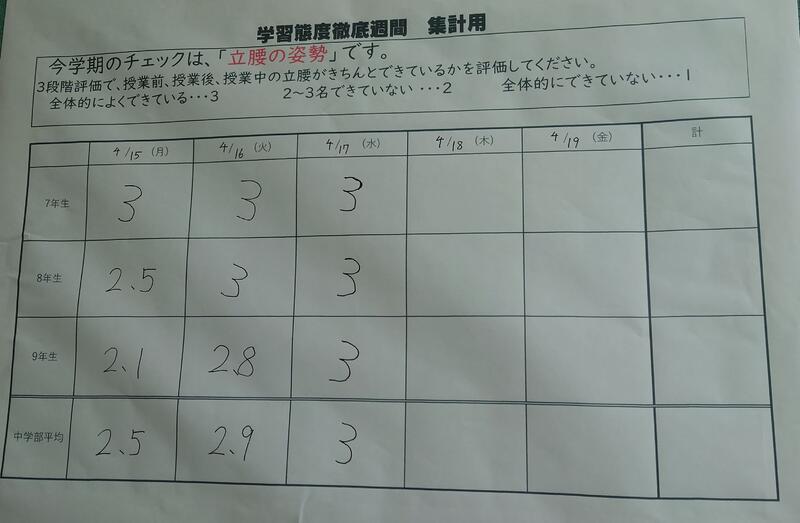 学習態度徹底週間 集計用
今学期のチェックは、「立腰の姿勢」です。
3段階評価で、授業前、授業後、授業中の立腰がきちんとできているかを評価してください。
全体的によくできている・・・3 2〜3名できていない ・・・2 全体的にできていない・・・1
4/15 (月) 4/16 (火) 4/17 (水) 4/18 (木) 4/19 (金) 計
7年生 3 3 3
8年生 2.5 3 3
9年生 2.1 2.8 3
中学部平均 2.5 2.9 3